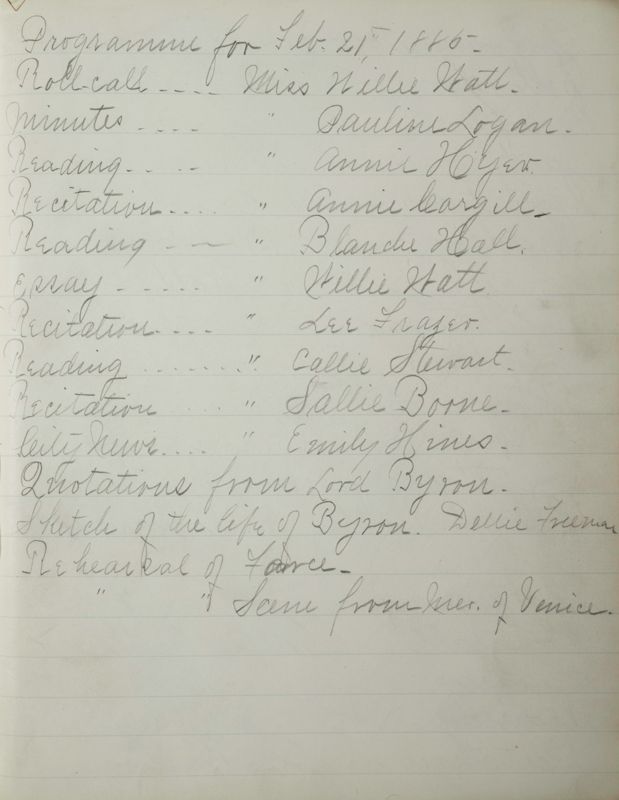 Programme for Feb. 21st, 1885-
Roll-call .... Miss Willie Watt.
Minutes .... " Pauline Logan.
Reading.. .. " Annie Hyer.
Recitation.... " Annie Cargill-
Reading - - " Blanche Hall.
Essay ...... " Willie Watt
Recitation.... " Lee Frazer.
Reading ......." Callie Stewart.
Recitation .... " Sallie Boone-
City News.... " Emily Hines-
Quotations from Lord Byron.
Sketch of the life of Byron. Dellie Freeman
Rehearsal of Farce-
" " Scene from Mer. of Venice.